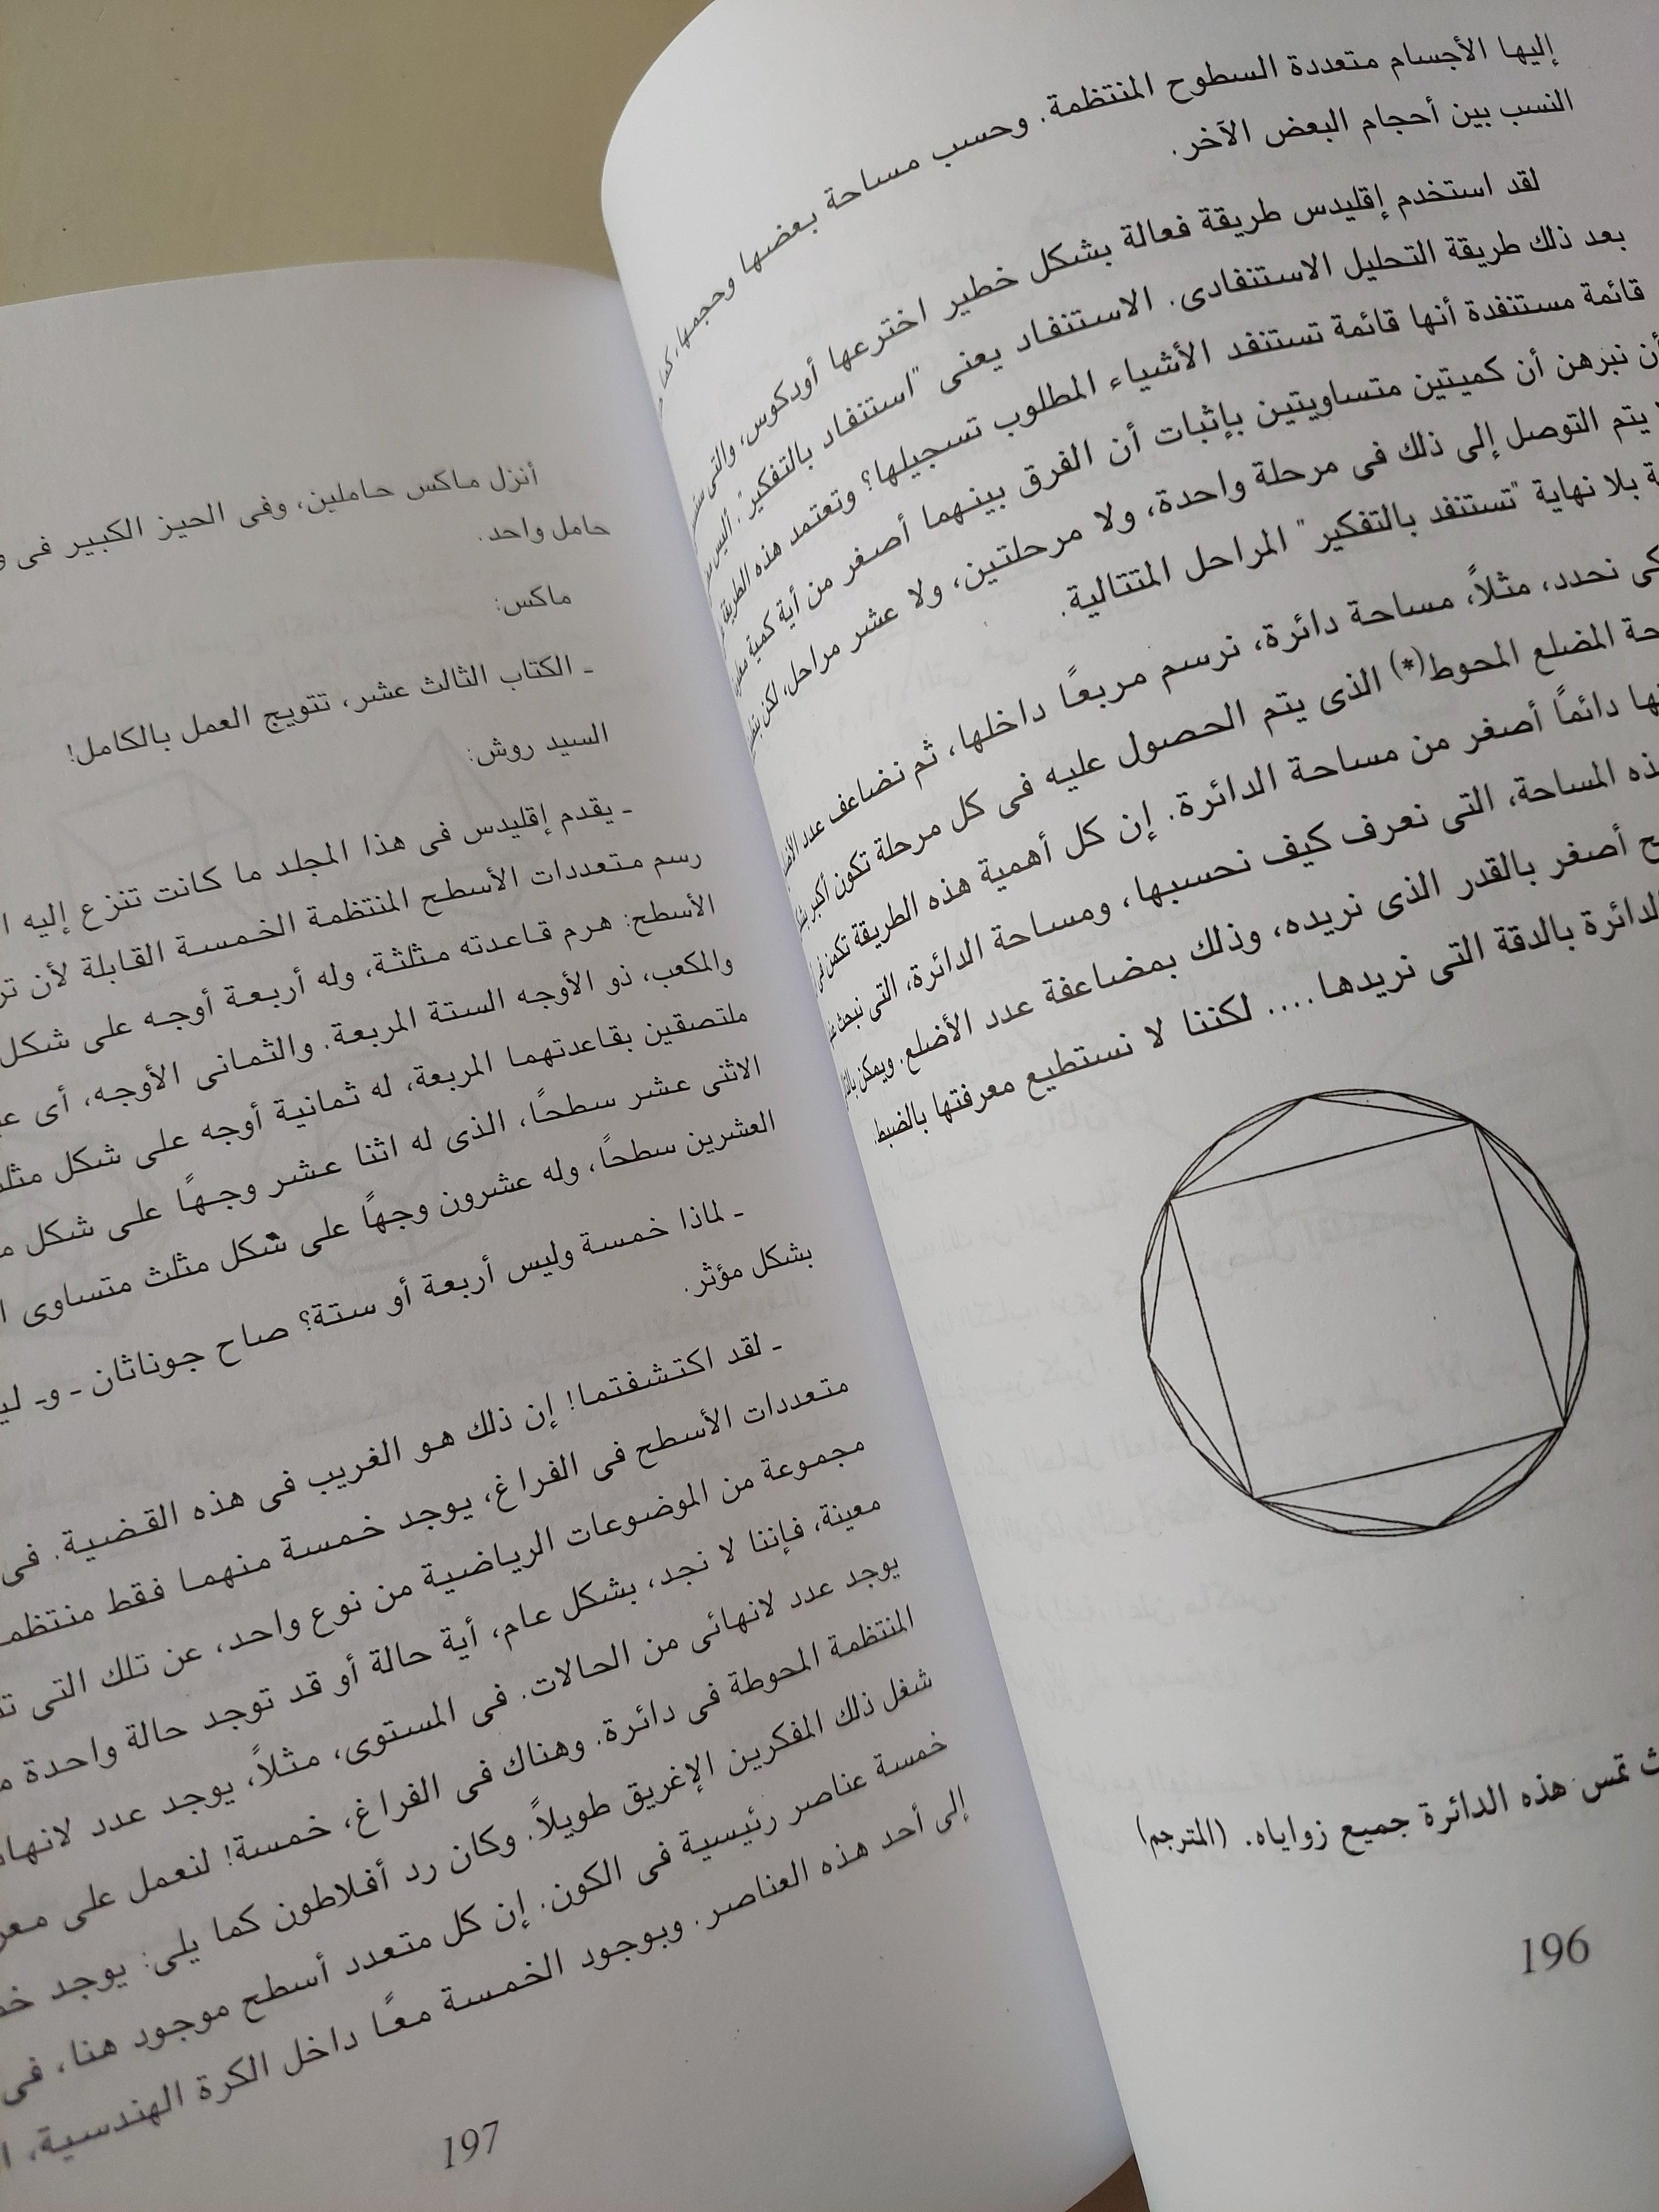 إليها الأجسام متعددة السطوح المنتظمة. وحسب مساحة بعضها وحجمها، كما
النسب بين أحجام البعض الآخر.
لقد استخدم إقليدس طريقة فعالة بشكل خطير اخترعها أودكوس، والتى
بعد ذلك طريقة التحليل الاستنفادى. الاستنفاد يعنى "استنفاد بالتفكير". أليس
قائمة مستنفدة أنها قائمة تستنفد الأشياء المطلوب تسجيلها؟ وتعتمد هذه الطريقة
أن نبرهن أن كميتين متساويتين بإثبات أن الفرق بينهما أصغر من أية كمية
يتم التوصل إلى ذلك فى مرحلة واحدة، ولا مرحلتين، ولا عشر مراحل، لكن
بلا نهاية "تستنفد بالتفكير" المراحل المتتالية.
نحدد، مثلاً، مساحة دائرة، نرسم مربعًا داخلها، ثم نضاعف عدد
المضلع المحوط(*) الذى يتم الحصول عليه فى كل مرحلة تكون أكبر
دائمًا أصغر من مساحة الدائرة. إن كل أهمية هذه الطريقة تكمن
المساحة، التى نعرف كيف نحسبها، ومساحة الدائرة، التى نبحث
أصغر بالقدر الذى نريده، وذلك بمضاعفة عدد الأضلع. ويمكن
الدائرة بالدقة التى نريدها.... لكننا لا نستطيع معرفتها بالضبط.
تمس هذه الدائرة جميع زواياه. (المترجم)
196
أنزل ماكس حاملين، وفى الحيز الكبير فى
حامل واحد.
ماكس:
ـ الكتاب الثالث عشر، تتويج العمل بالكامل!
السيد روش:
ـ يقدم إقليدس فى هذا المجلد ما كانت تنزع إليه
رسم متعددات الأسطح المنتظمة الخمسة القابلة لأن
الأسطح: هرم قاعدته مثلثة، وله أربعة أوجه على شكل
والمكعب، ذو الأوجه الستة المربعة. والثمانى الأوجه، أى
ملتصقين بقاعدتهما المربعة، له ثمانية أوجه على شكل
الاثنى عشر سطحًا، الذى له اثنا عشر وجهًا على شكل
العشرين سطحًا، وله عشرون وجهًا على شكل مثلث متساوى
ـ لماذا خمسة وليس أربعة أو ستة؟ صاح جوناثان ـ وـ
بشكل مؤثر.
ـ لقد اكتشفتما! إن ذلك هو الغريب فى هذه القضية. فى
متعددات الأسطح فى الفراغ، يوجد خمسة منهما فقط
مجموعة من الموضوعات الرياضية من نوع واحد، عن تلك التى
معينة، فإننا لا نجد، بشكل عام، أية حالة أو قد توجد حالة واحدة
يوجد عدد لانهائى من الحالات. فى المستوى، مثلاً، يوجد عدد
المنتظمة المحوطة فى دائرة. وهناك فى الفراغ، خمسة! لنعمل على
شغل ذلك المفكرين الإغريق طويلاً. وكان رد أفلاطون كما يلى: يوجد
خمسة عناصر رئيسية فى الكون. إن كل متعدد أسطح موجود هنا، فى
إلى أحد هذه العناصر. وبوجود الخمسة معًا داخل الكرة الهندسية،
197